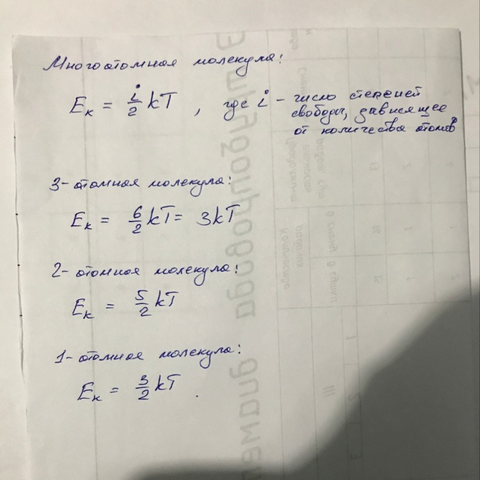 Многоатомная молекула:
Eк = i/2 kT , где i – число степеней
свободы, зависящее
от количества атомов
3-атомная молекула:
Eк = 6/2 kT = 3kT
2-атомная молекула:
Eк = 5/2 kT
1-атомная молекула:
Eк = 3/2 kT.